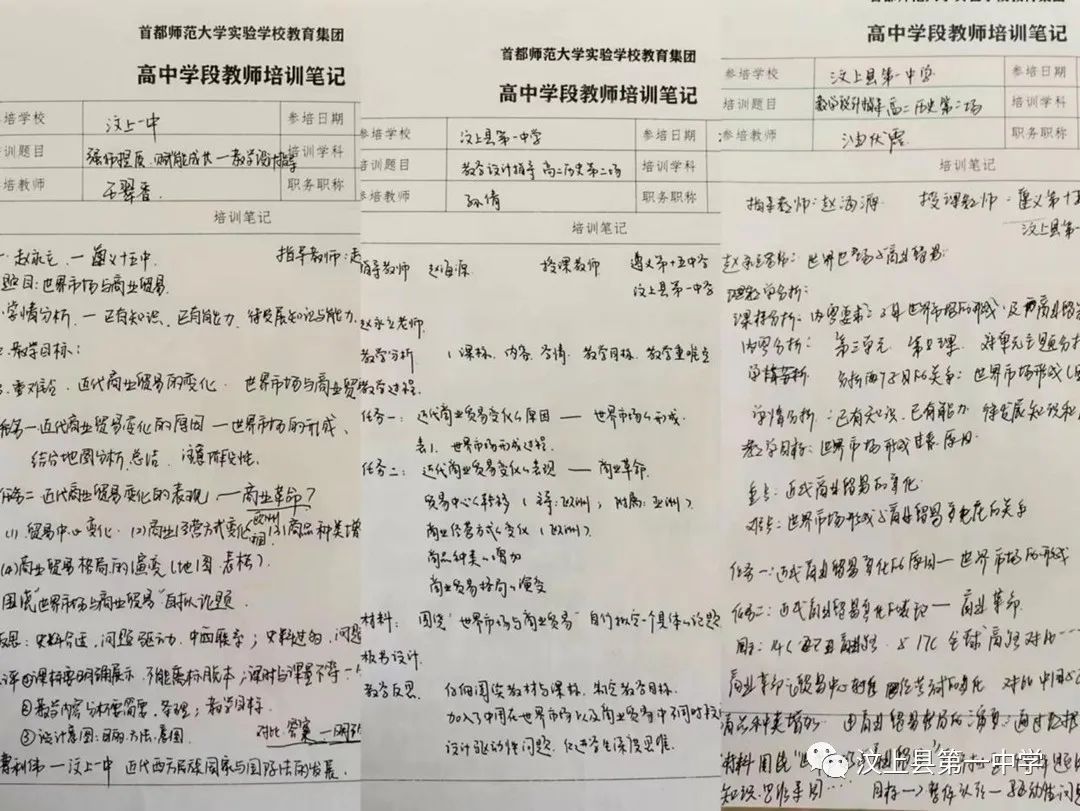 首都师范大学实验学校教育集团
高中学段教师培训笔记
培学校 汶上一中 参培日期
训题目 强师提质.赋能成长一教学设计指导 培训学科
培教师 职务职称
培训笔记
赵永立.一遵义十五中. 指导教师:赵
题目:世界市场与商业贸易.
学情分析.一已有知识、已有能力、待发展知识与能力.
二.教学目标:
重难点.近代商业贸易的变化. 世界市场与商业贸
任务一近代商业贸易变化的原因一世界市场的形成、
结合地图分析总结.注意阶段性.
任务二近代商业贸易变化的表现.一商业革命?
(1).贸易中心变化.(2)商业经营方式变化 (3)商品种类增
欧洲
(4)商业贸易格局的演变(地图.表格).
围绕"世界市场与商业贸易"自拟论题.
反思:史料合适,问题驱动.中西联系;史料过多,问题
课标要明确展示.不能离标脱本;课时与课量不等.
②教学内容与标题简要、条理;教学目标.
③设计意图:目的.方法.意图.
对比.答案一
一汶上一中 近代西方民族国家与国际法的发展.
首都师范大学实验学校教育集团
高中学段教师培训笔记
参培学校 汶上县第一中学 参培日期
培训题目 教学设计指导 高二历史第二场 培训学科
参培教师 孙倩 职务职称
培训笔记
指导教师 赵海源 授课教师 遵义第十五中学
汶上县第一中学
赵永立老师.
教学分析 1课标、内容、学情、教学目标、教学重难点
教学过程.
任务一: 近代商业贸易变化的原因 —— 世界市场的形成.
表1.世界市场形成过程.
任务二: 近代商业贸易变化的表现 —— 商业革命.
贸易中心的转移(主导:欧洲; 附属:亚洲).
商业经营方式的变化(欧洲).
商品种类的增加
商业贸易格局的演变
材料: 围绕"世界市场与商业贸易"自行拟定一个具体的论题
板书设计.
教学反思. 仔细阅读教材与课标.制定教学目标.
加入了中国在世界市场以及商业贸易中不同时段
设计驱动性问题.促进学生深度思维.
高中学段教师培训笔记
参培学校 汶上县第一中学 参培日期
培训题目 教学设计指导高二历史第二场 培训学科
参培教师 职务职称
培训笔记
指导教师:赵海源 授课教师:遵义第十五
汶上县第一
赵永立老师:世界市场与商业贸易.
课标分析:内容要求:了解世界市场的形成,及商业贸
内容分析: 第三单元 第8课. 对单元主题分析
分析两个子目的关系:世界市场形成
学情分析:已有知识,已有能力 待发展知识和
教学目标:世界市场形成 原因.
重点:近代商业贸易的变化.
难点:世界市场形成与商业贸易变化的关系
任务一:近代商业贸易变化的原因一世界市场的形成
任务二:近代商业贸易变化的表现 — 商业革命.
商品种类增加
汶上县第一中学